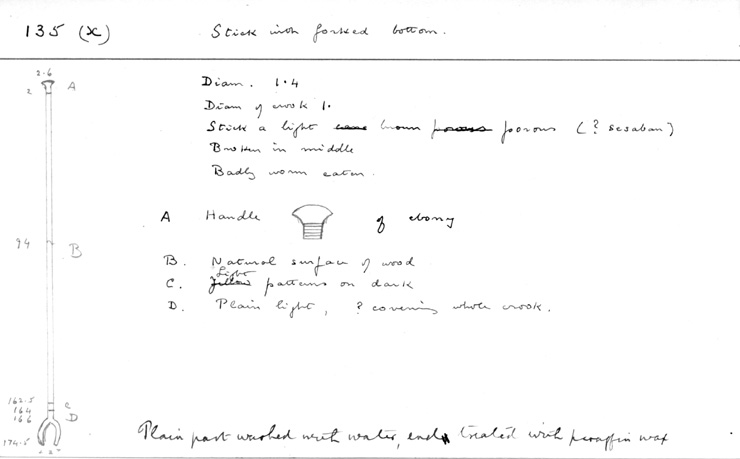 135 (x) Stick with forked bottom.
2.6
2 A
Diam. 1.4
Diam of crook 1.
Stick a light brown porous (? sesaban)
Broken in middle
Badly worm eaten.
A Handle of ebony
94 B
B. Natural surface of wood
C. Light patterns on dark
D. Plain light, ? covering whole crook.
162.5 C
164 D
166
174.5
2
Plain part washed with water, ends treated with paraffin wax